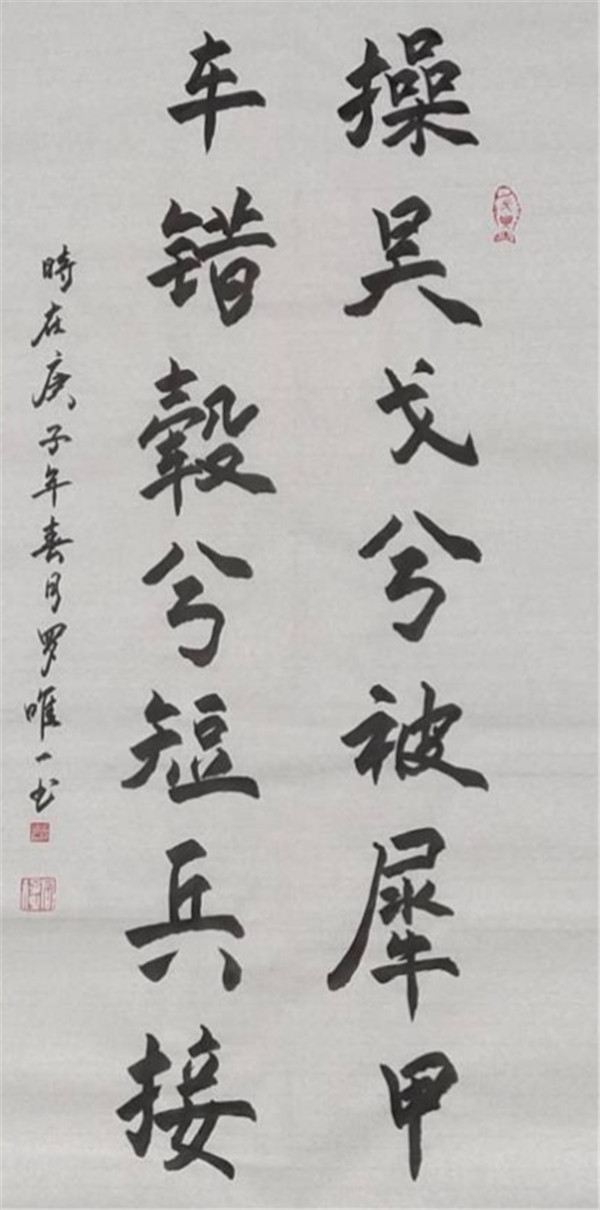 操吴戈兮被犀甲
车错毂兮短兵接
時在庚子年春月罗唯一书